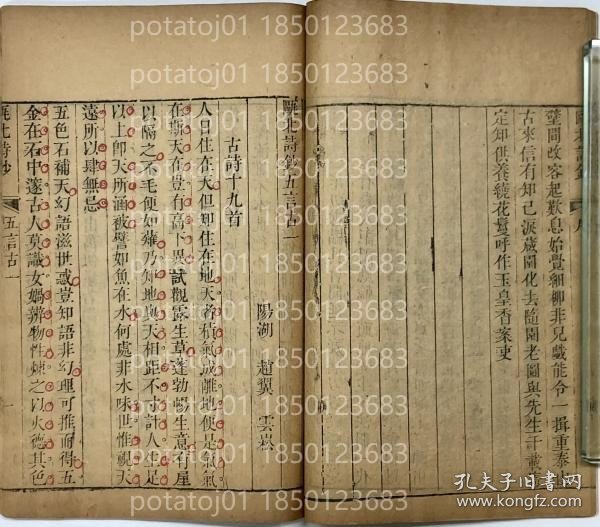 potatoj01 1850123683
potatoj01 1850123683
potatoj01 1850123683
potatoj01 1850123683
potatoj01 1850123683
potatoj01 1850123683
葉間改容起歎息始覺細柳非兒戲能令一揖重泰山
古來信有知己淚歲園化去隨園老圖與先生千載
定知供養繞花鬘呼作玉皇香案吏
甌北詩鈔五言古一
陽湖 趙翼 雲崧
古詩十九首
人日住在天但知住在地天者積氣成離地便是氣氣
在斯天在豈有高下異試觀露生草蓬勃暢生意有厓
以隔之不毛便如薙乃知地與天相距不寸計人生足
以上卽天所涵被譬如魚在水何處非水味世惟視天
遠所以肆無忌
五色石補天幻語滋世惑豈知語非幻理可推而得五
金在石中邃古人莫識女媧辨物性煉之以火德其色
甌北詩鈔
五言古一
一
孔夫子旧书网
www.kongfz.com